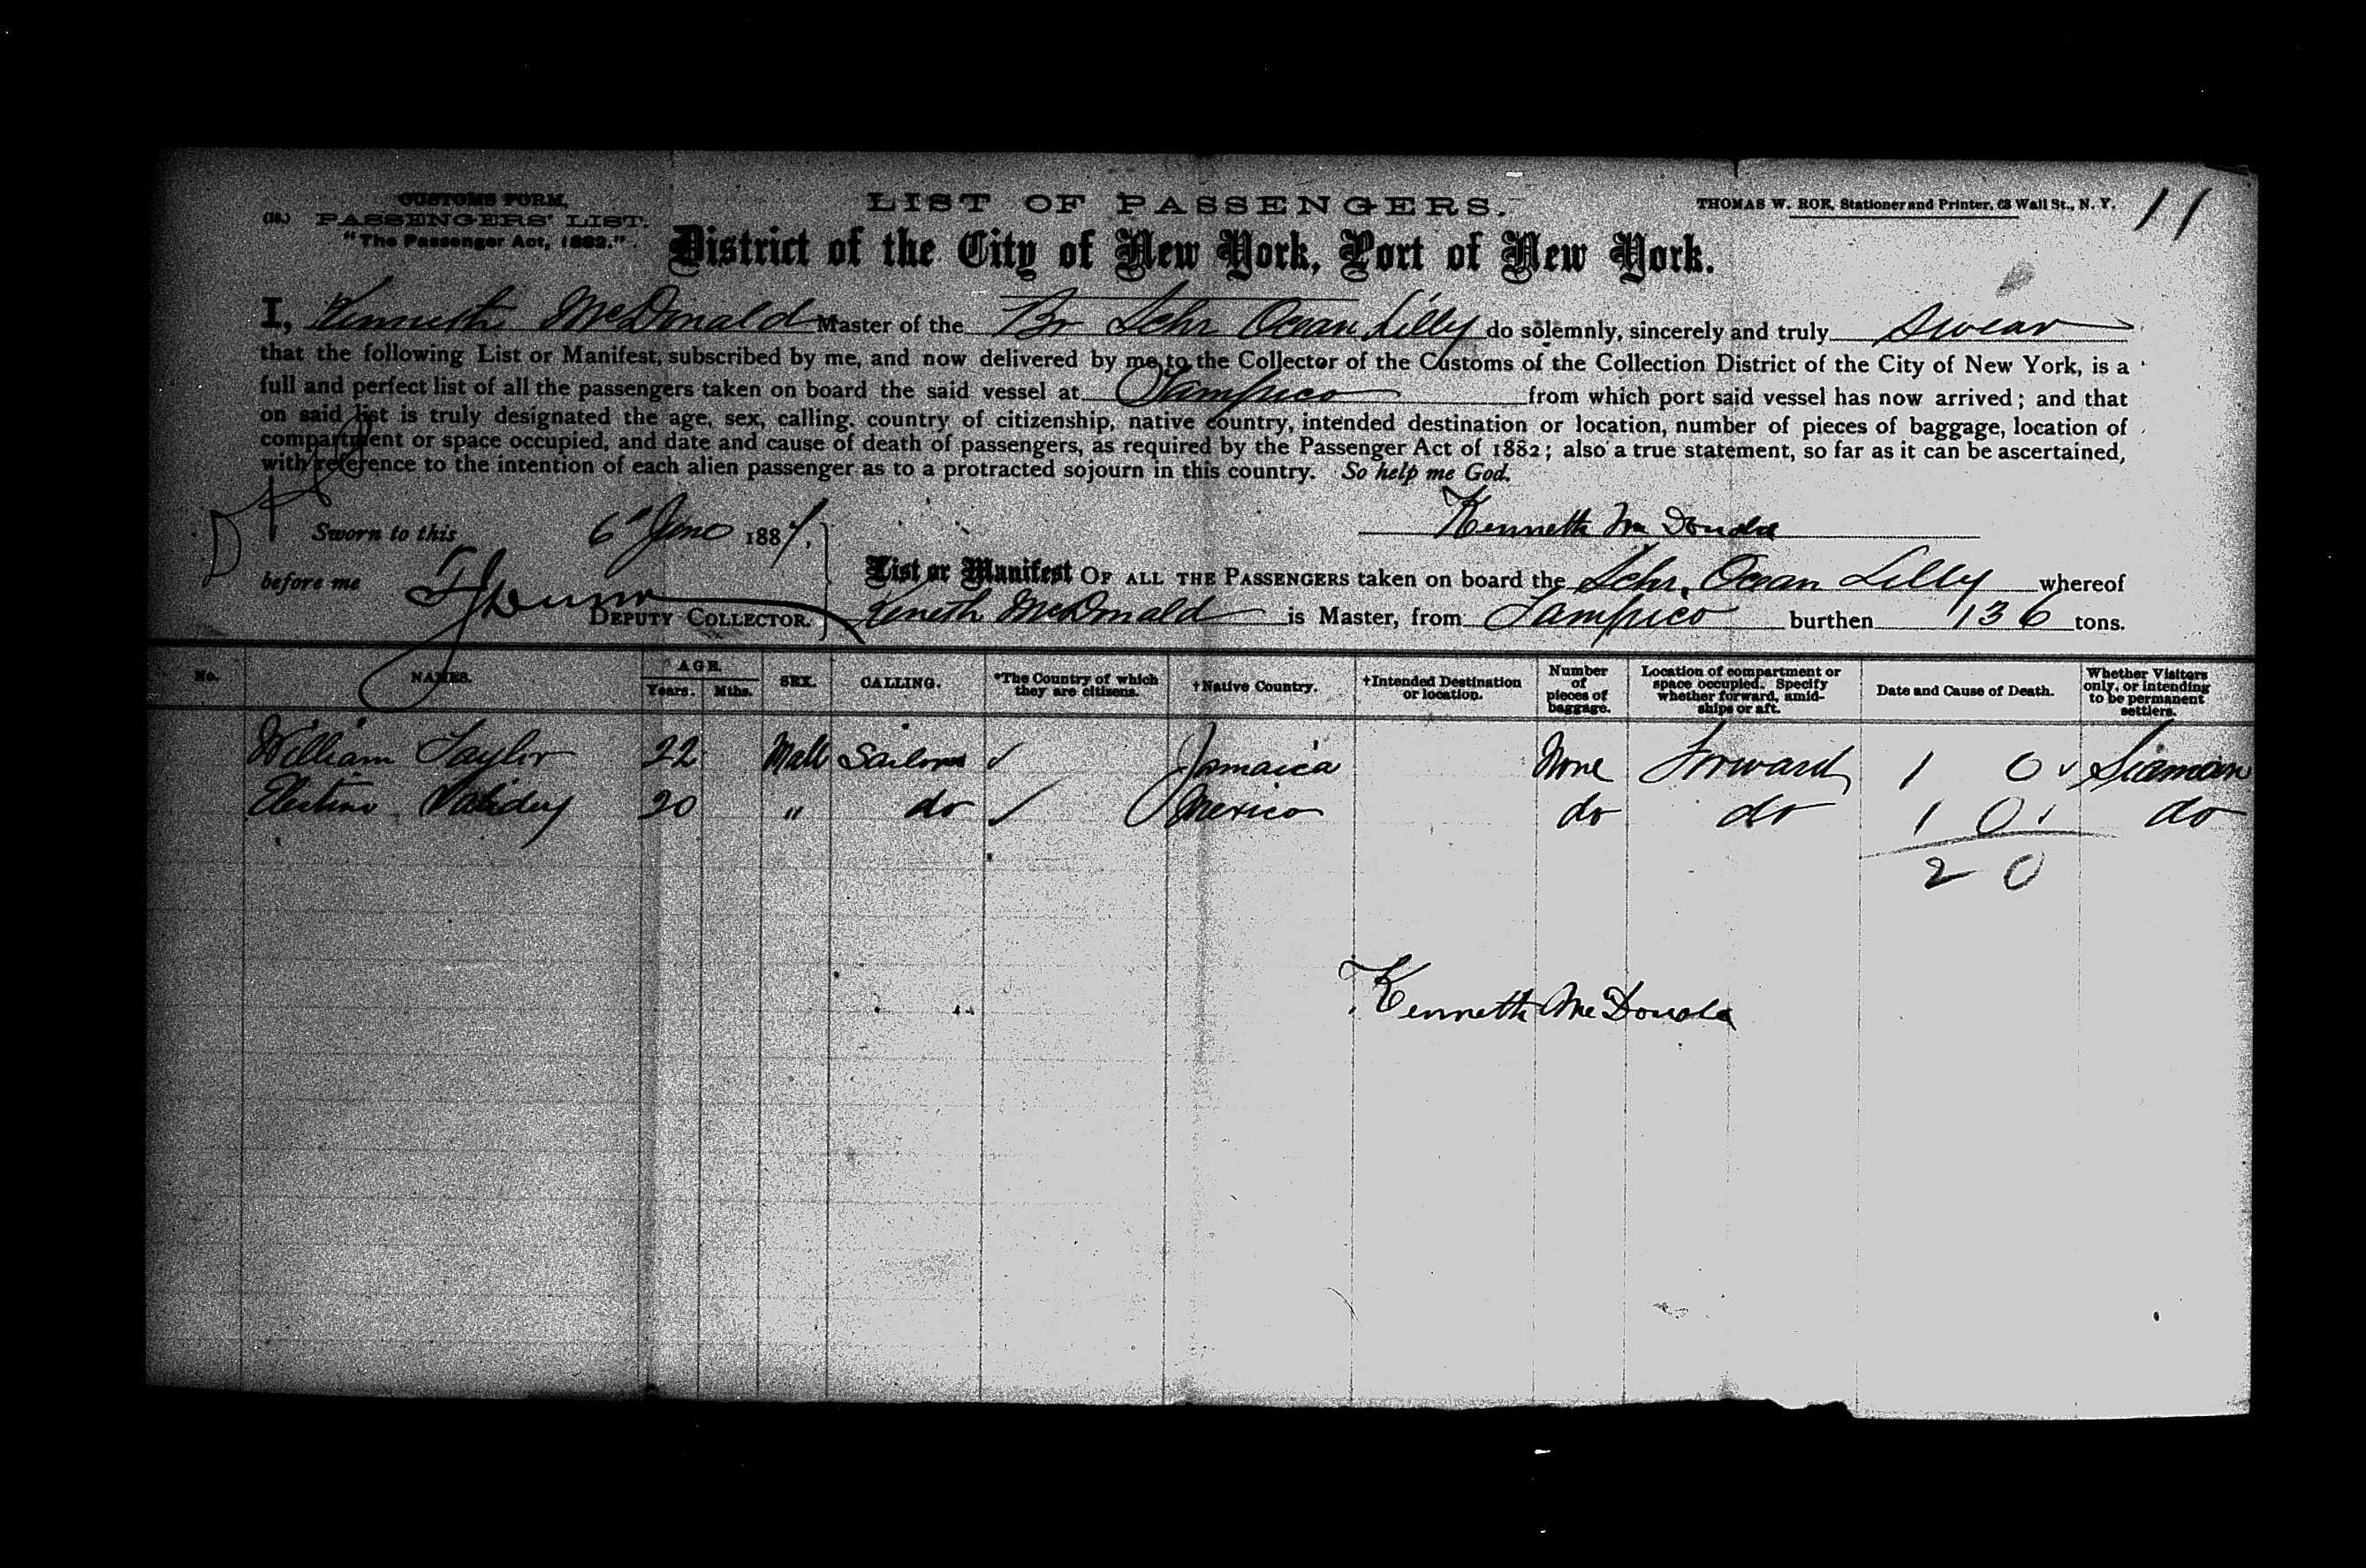 CUSTOMS FORM.
(18.) PASSENGERS' LIST.
"The Passenger Act, 1882."
LIST OF PASSENGERS.
THOMAS W. ROE, Stationer and Printer, 63 Wall St., N. Y.
11
District of the City of New York, Port of New York.
I, Kenneth McDonald Master of the Br Schr Ocean Lilly do solemnly, sincerely and truly swear
that the following List or Manifest, subscribed by me, and now delivered by me to the Collector of the Customs of the Collection District of the City of New York, is a
full and perfect list of all the passengers taken on board the said vessel at Tampico from which port said vessel has now arrived; and that
on said list is truly designated the age, sex, calling, country of citizenship, native country, intended destination or location, number of pieces of baggage, location of
compartment or space occupied, and date and cause of death of passengers, as required by the Passenger Act of 1882; also a true statement, so far as it can be ascertained,
with reference to the intention of each alien passenger as to a protracted sojourn in this country. So help me God.
Sworn to this 6" June 1887,
Kenneth McDonald
before me
DEPUTY COLLECTOR.
List or Manifest OF ALL THE PASSENGERS taken on board the Schr. Ocean Lilly whereof
Keneth McDonald is Master, from Tampico burthen 136 tons.
No. NAMES. AGE. Years. Mths. SEX. CALLING. *The Country of which they are citizens. †Native Country. †Intended Destination or location. Number of pieces of baggage. Location of compartment or space occupied. Specify whether forward, amidships or aft. Date and Cause of Death. Whether Visitors only, or intending to be permanent settlers.
William Taylor 22 Male Sailor ✓ Jamaica None Forward 1 0 ✓ Seaman
20 " do ✓ Mexico do do 1 0 ✓ do
2 0
Kenneth McDonald